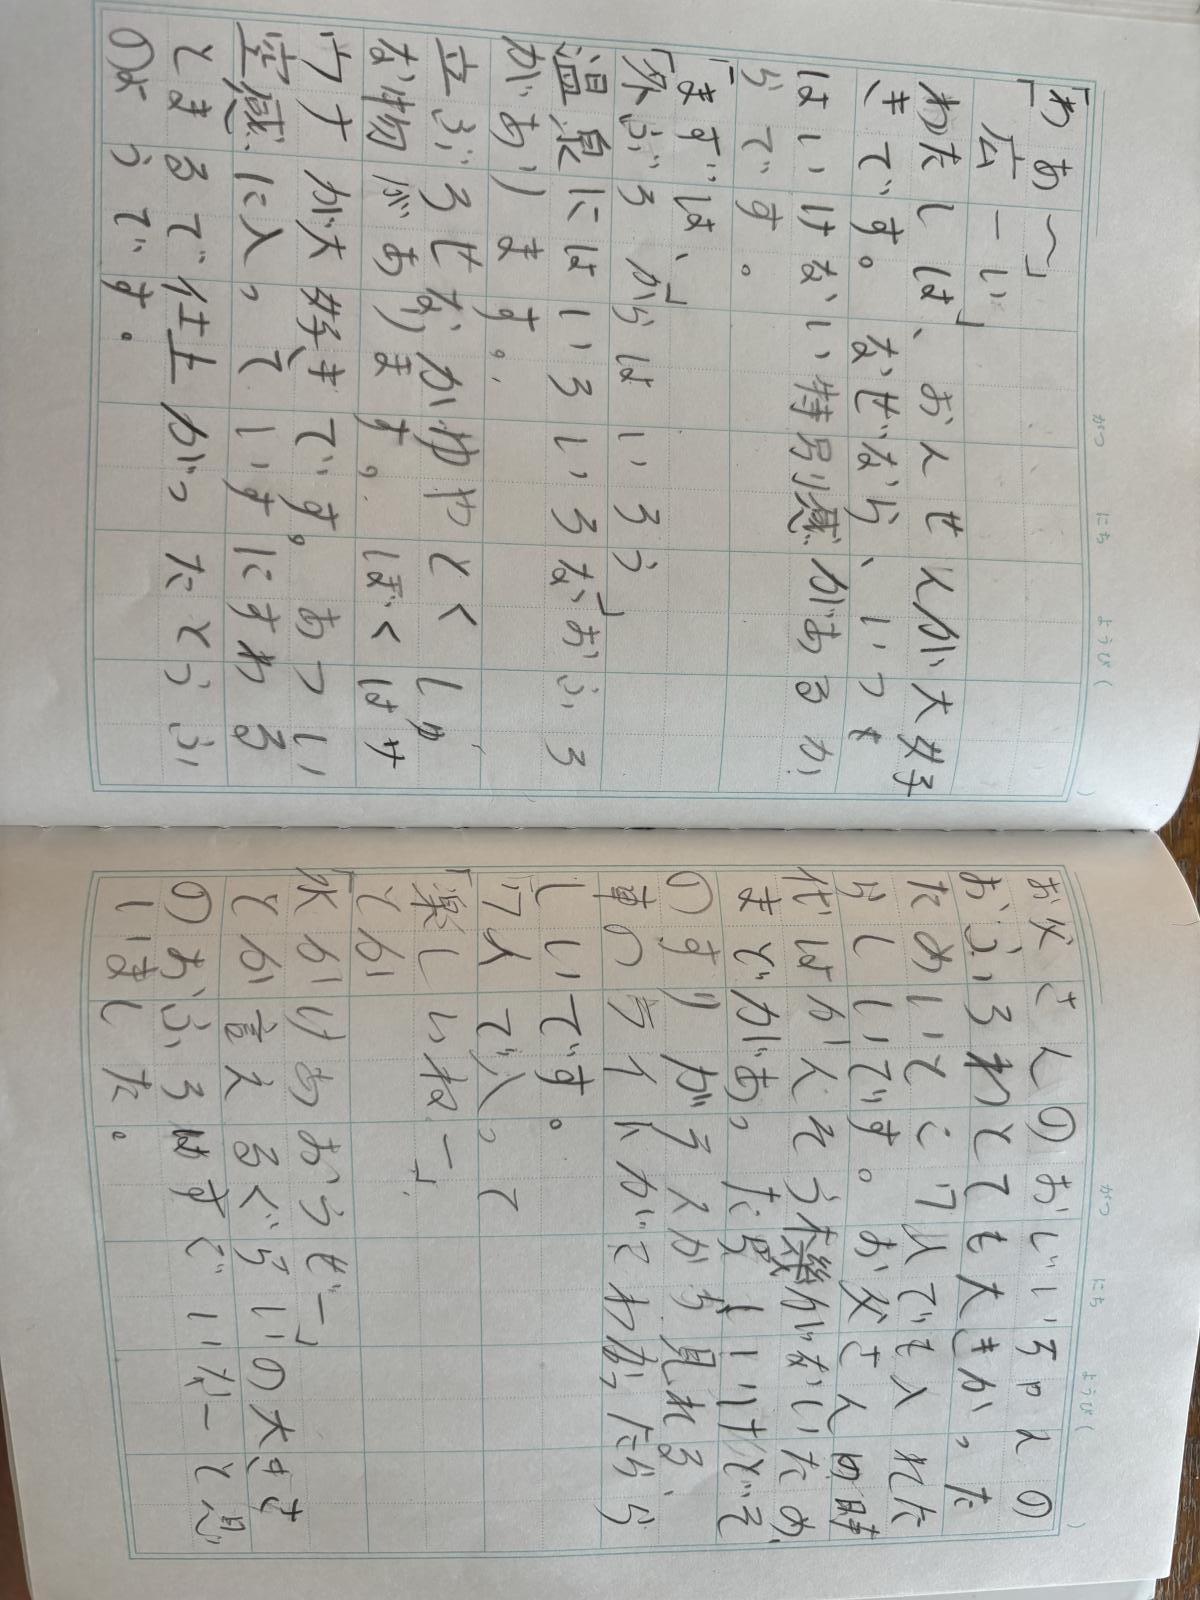 「わあ〜」
「広ーい」
わたしは、おんせんが大好
きです。なぜなら、いつも
はいけない特別感があるか
らです。
「まずは、」
「外ぶろからはいろう」
温泉にはいろいろなおふろ
があります。
立ぶろせなかゆやとくしゅ
な物があります。ぼくはサ
ウナが大好きです。あつい
空感に入っていすにすわる
とまるで仕上がったとうふ
のようです。
お父さんのおじいちゃんの
おふろわとても大きかった
ためいとこ7人でも入れた
らしいです。お父さんの時
代はかんそう機がないため
まどがあったらしいけどそ
のすりガラスから見れる
車のライトがこわかったら
しいです。
7人で入って
「楽しいねー」
とか
「水かけあおうぜー」
とか言えるぐらいの大きさ
のおふろはすごいなーと思
いました。
がつ にち ようび( )
がつ にち ようび( )